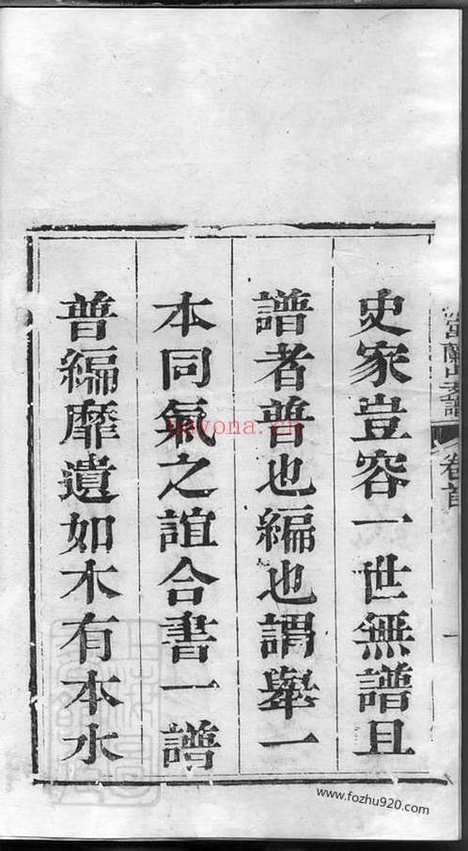 史家豈容一世無譜且
譜者普也編也謂舉一
本同氣之誼合書一譜
普編靡遺如木有本水
卷首
一
nayona.cn
www.fozhu920.com